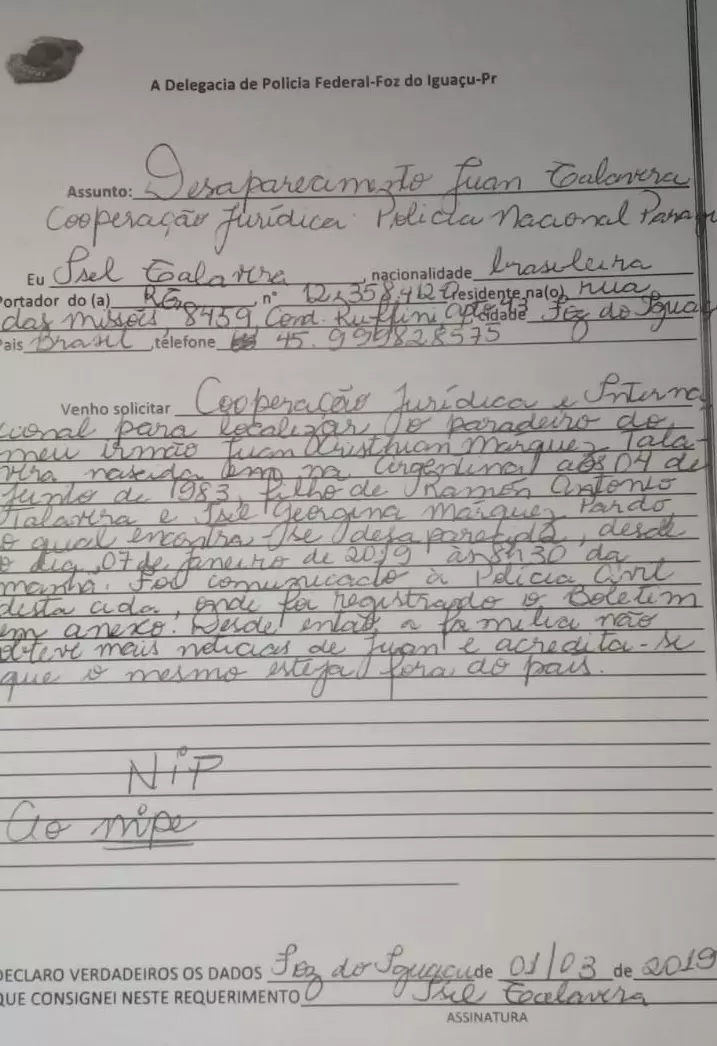 A Delegacia de Policia Federal-Foz do Iguaçu-Pr
Assunto: Desaparecimento Juan Talavera
Cooperação Jurídica: Policia Nacional Para
Eu Isel Talavera, nacionalidade brasileira
Portador do (a) RG, n° 12.358.412 residente na(o) rua
das missões, 8459, Cond. Ruffini apto cidade Foz do Iguaç
Pais Brasil, télefone 45. 999828575
Venho solicitar Cooperação Jurídica e Interna
cional para localizar o paradeiro do
meu irmão Juan Cristhian Marquez Tala-
vera nascido na Argentina aos 04 de
Junho de 1983, filho de Ramón Antonio
Talavera e Isel Georgina Marquez Pardo,
o qual encontra-se desaparecido, desde
o dia 07 de janeiro de 2019 às 8h30 da
manhã. Foi comunicado à Polícia Civil
desta cida, onde foi registrado o Boletim
em anexo. Desde então a familia não
obteve mais notícias de Juan e acredita-se
que o mesmo esteja fora do país.
NIP
Ao nipe
DECLARO VERDADEIROS OS DADOS Foz do Iguaçu de 01/03 de 2019
QUE CONSIGNEI NESTE REQUERIMENTO Isel Talavera
ASSINATURA